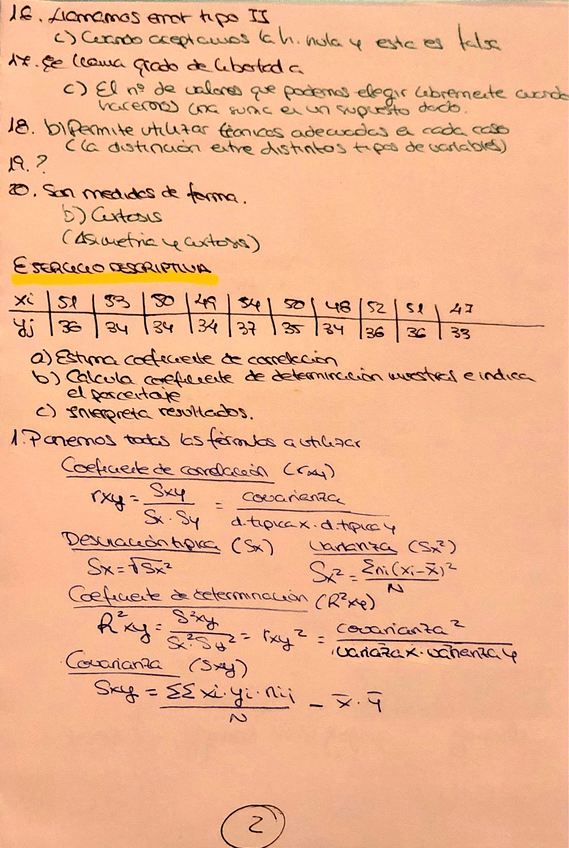 16. Llamamos error tipo II
c) Cuando aceptamos la h. nula y esta es falsa
17. Se llama grado de libertad a
c) El nº de valores que podemos elegir libremente cuando
hacemos una suma en un supuesto dado.
18. b) Permite utilizar técnicas adecuadas a cada caso
(la distinción entre distintos tipos de variables)
19. ?
20. Son medidas de forma.
b) Curtosis
(Asimetria y curtosis)
EJERCICIO DESCRIPTIVA
xi | 51 | 53 | 50 | 49 | 54 | 50 | 48 | 52 | 51 | 47
yj | 36 | 34 | 34 | 34 | 37 | 35 | 34 | 36 | 36 | 33
a) Estima coeficiente de correlación
b) Calcula coeficiente de determinación muestral e indica
el porcentaje
c) Interpreta resultados.
1. Ponemos todas las fórmulas a utilizar
Coeficiente de correlación (rxy)
rxy = Sxy / Sx · Sy = covarianza / d. tipica x · d. tipica y
Desviación típica (Sx) Varianza (Sx²)
Sx = √Sx² Sx² = Σni (xi - x̄)² / N
Coeficiente de determinación (R²xy)
R²xy = S²xy / Sx² · Sy² = rxy² = covarianza² / varianza x · varianza y
Covarianza (Sxy)
Sxy = ΣΣ xi · yi · nij / N - x̄ · ȳ
2